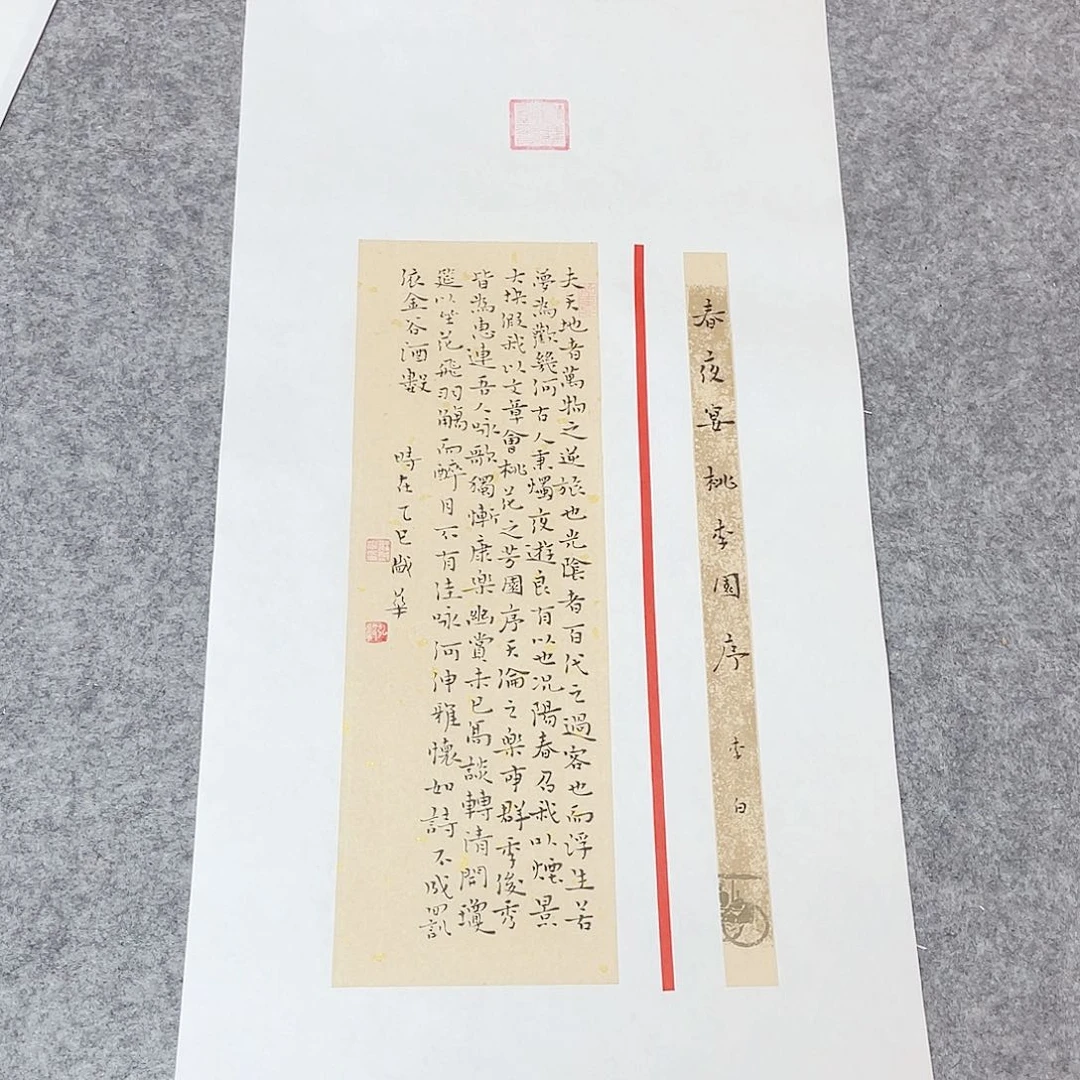 春夜宴桃李園序
李白
夫天地者萬物之逆旅也光陰者百代之過客也而浮生若
夢為歡幾何古人秉燭夜遊良有以也况陽春召我以煙景
大块假我以文章會桃花之芳園序天倫之樂事群季俊秀
皆為惠連吾人咏歌獨慚康樂幽賞未已高談轉清開瓊
筵以坐花飛羽觴而醉月不有佳咏何伸雅懷如詩不成罰
依金谷酒數
時在乙巳歲 華